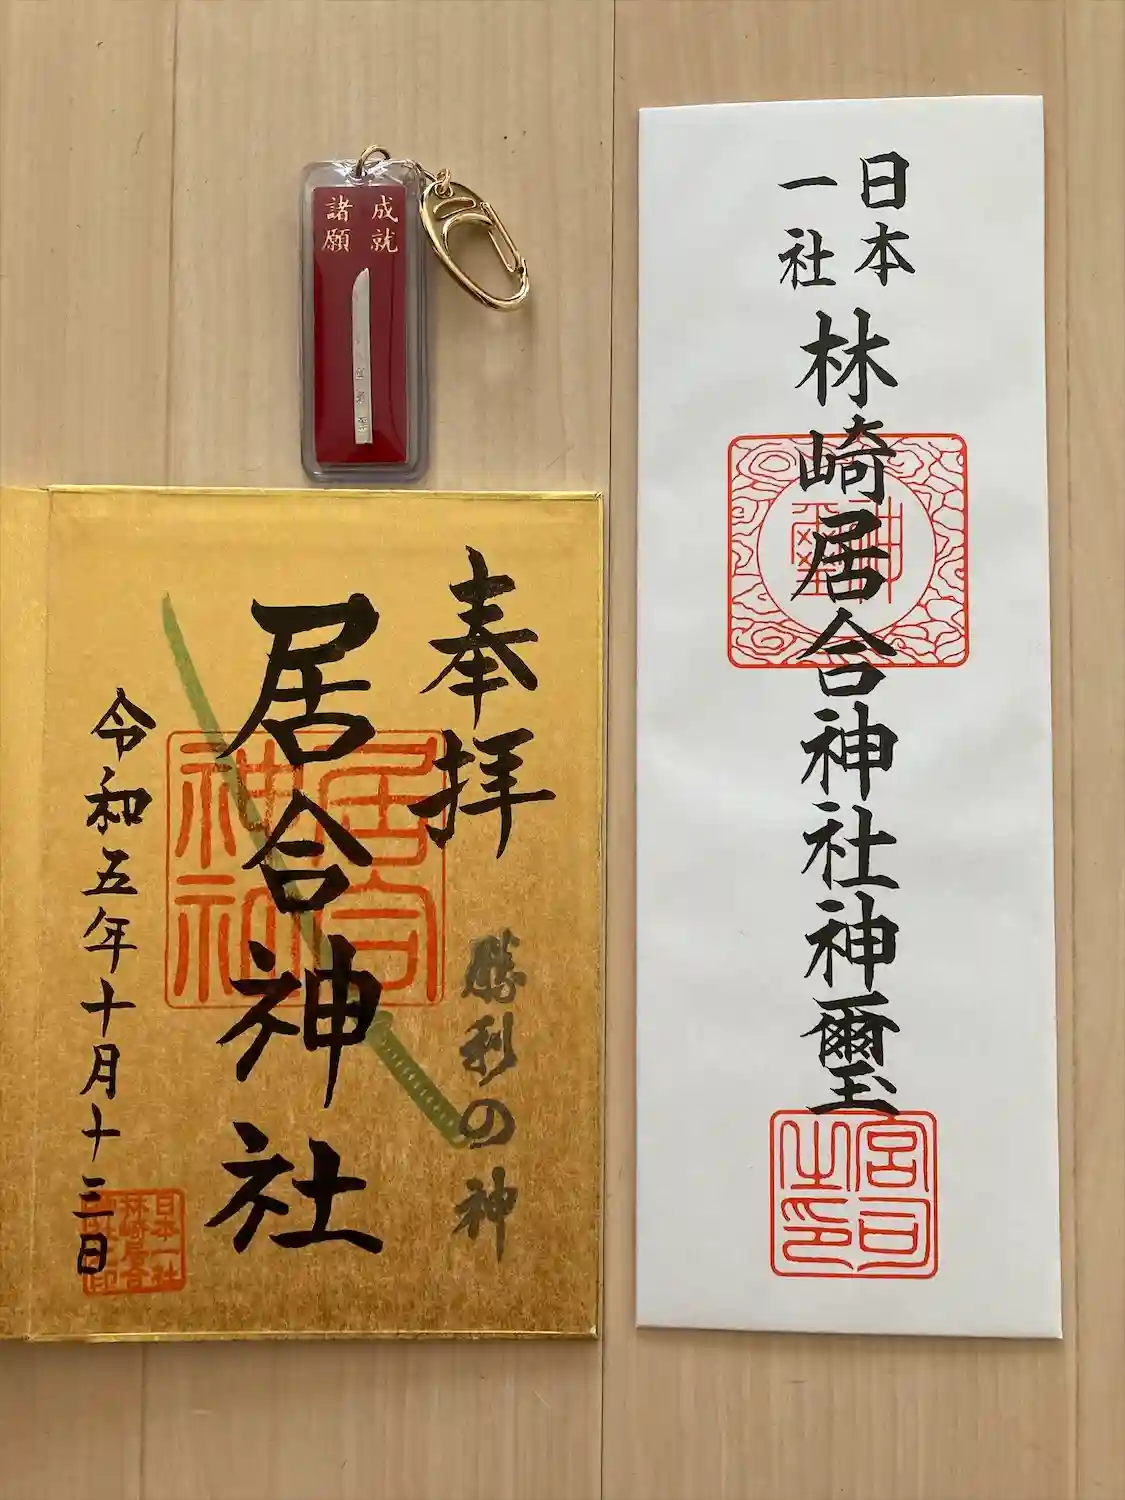 諸願
成就
日本
一社
林崎居合神社神璽
神璽
宮司
之印
奉拝
勝利の神
居合神社
居合
神社
令和五年十月十三日
日本一社
林崎居合